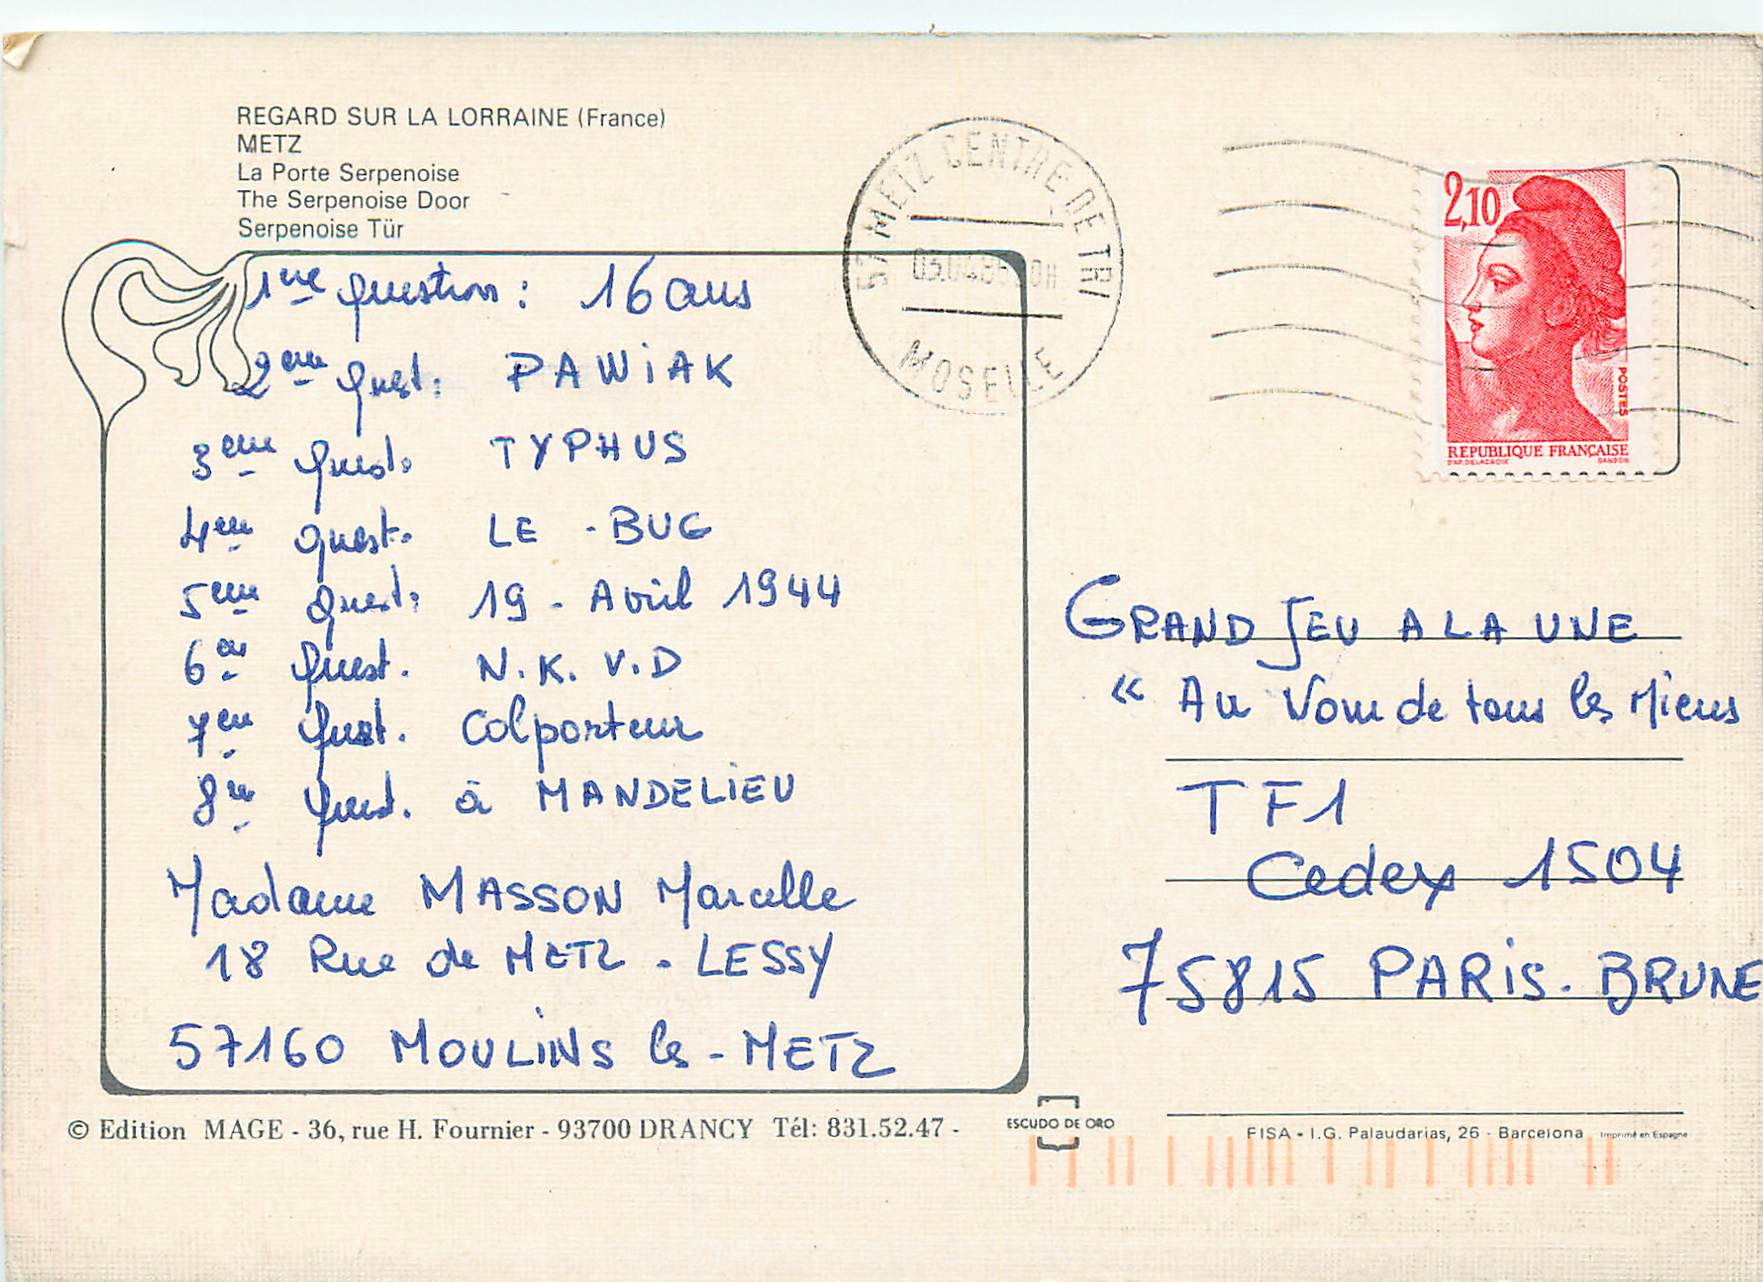 REGARD SUR LA LORRAINE (France)
METZ
La Porte Serpenoise
The Serpenoise Door
Serpenoise Tür
57 METZ CENTRE DE TRI
MOSELLE
2,10
POSTES
REPUBLIQUE FRANÇAISE
D'AP. DELACROIX GANDON
1ère question : 16 ans
2ème quest. PAWIAK
3ème quest. TYPHUS
4ème quest. LE - BUG
5ème quest. 19 - Avril 1944
6ème quest. N.K.V.D
7ème quest. Colporteur
8ème quest. à MANDELIEU
Madame MASSON Marcelle
18 Rue de METZ - LESSY
57160 MOULINS les - METZ
GRAND JEU A LA UNE
« Au Nom de tous les Miens
TF1
Cedex 1504
75815 PARIS. BRUNE
© Edition MAGE - 36, rue H. Fournier - 93700 DRANCY Tél: 831.52.47 -
ESCUDO DE ORO
FISA - I.G. Palaudarias, 26 - Barcelona Imprimé en Espagne